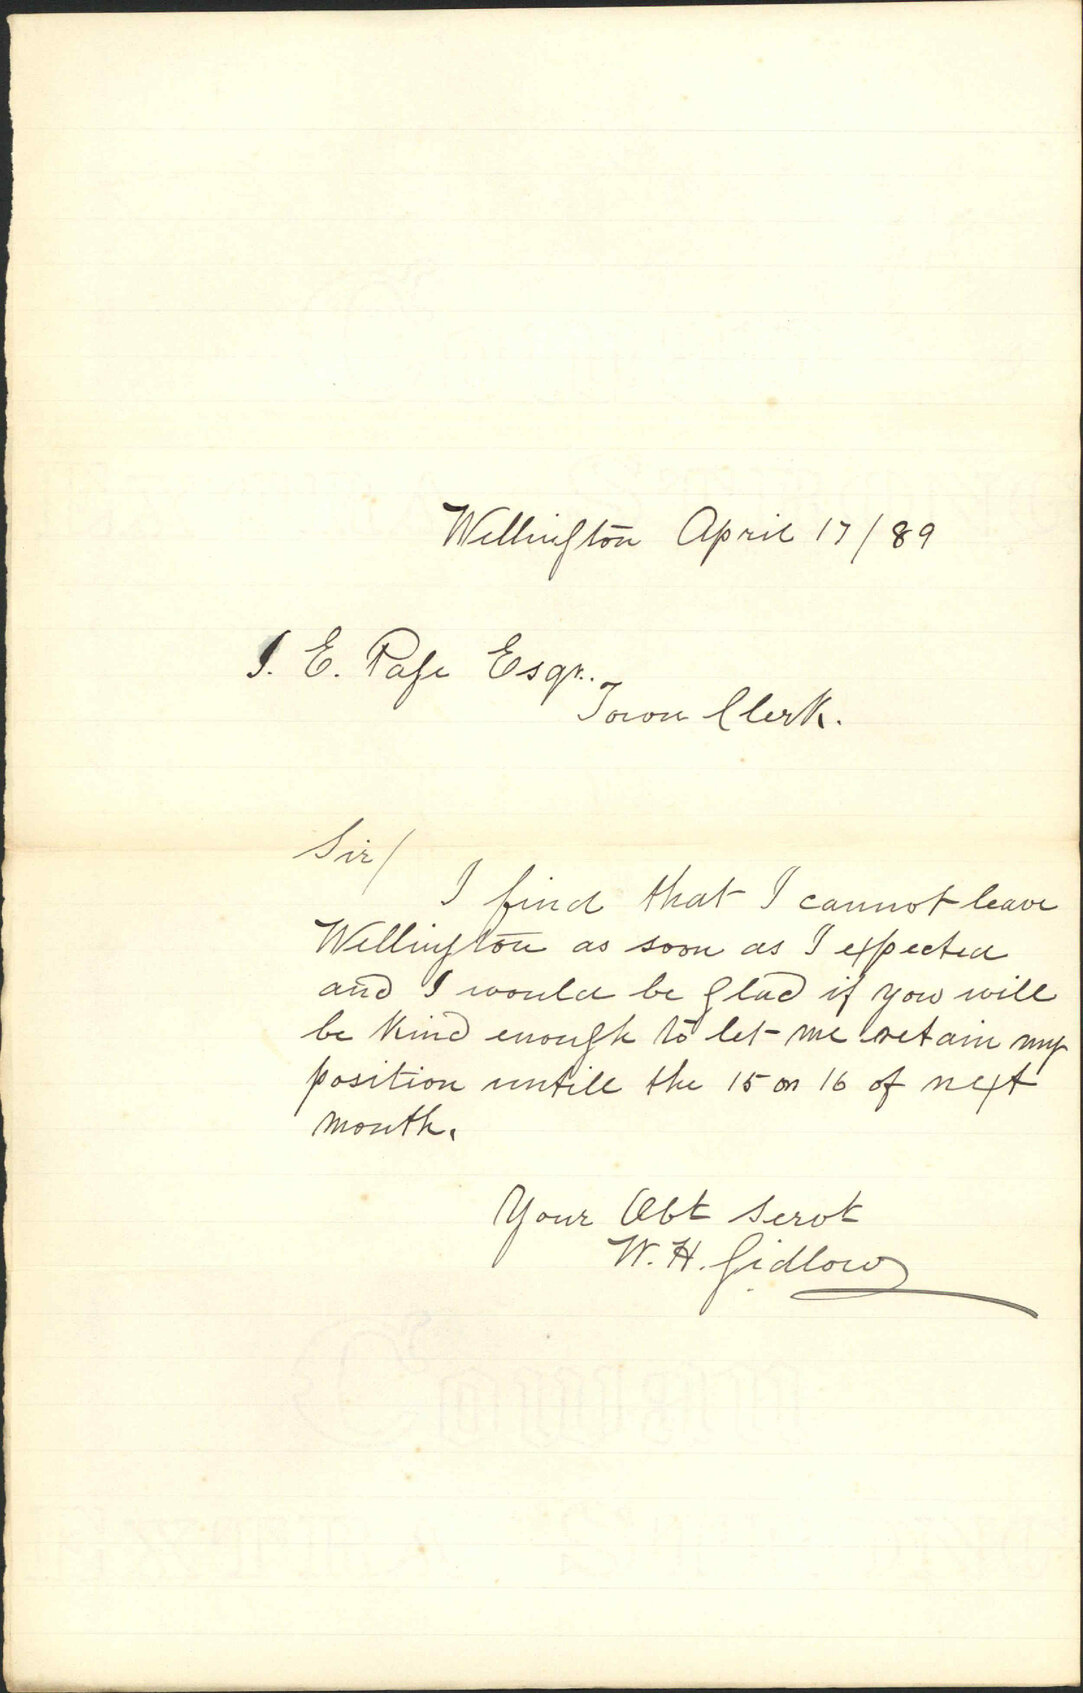 Wellington April 17/89
J. E. Page Esqr.
Town Clerk.
Sir/
I find that I cannot leave
Wellington as soon as I expected
and I would be glad if you will
be kind enough to let me retain my
position untill the 15 or 16 of next
month.
Your Obt Servt
W. H. Gidlow